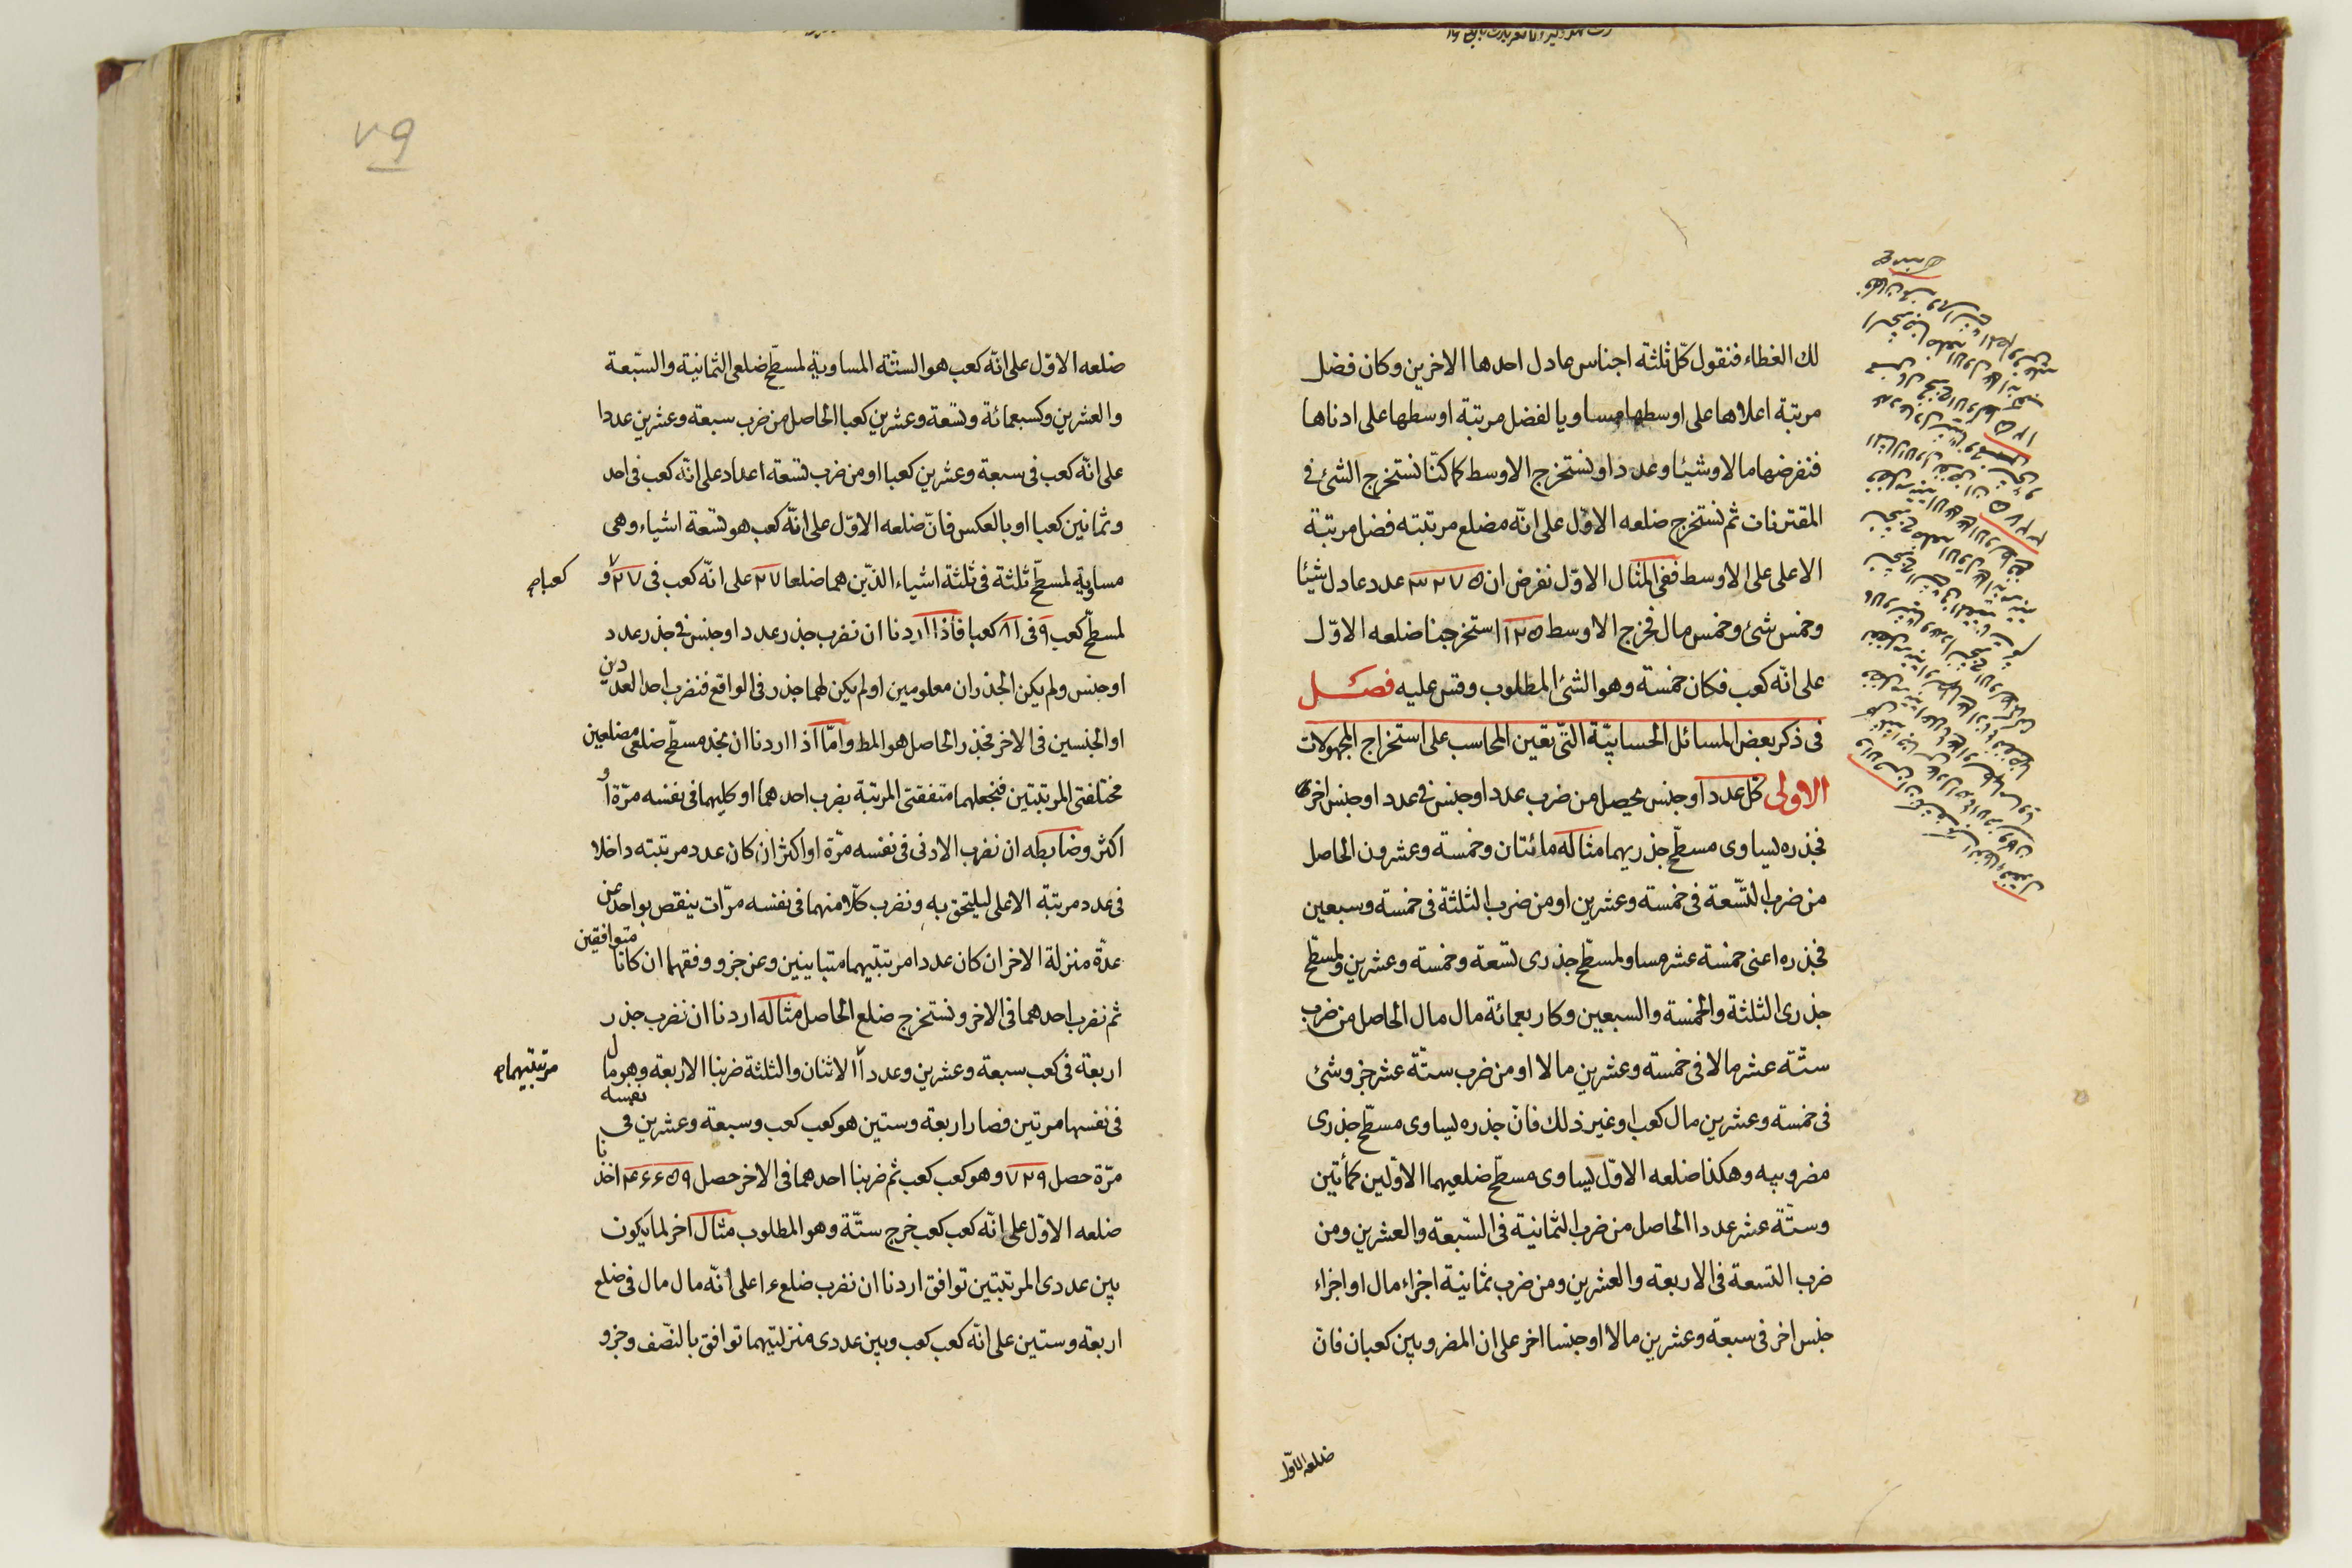 لك الغطاء فنقول كلّ ثلثة اجناس عادل احدها الاخرين وكان فضل
مرتبة اعلاها على اوسطها مساويا لفضل مرتبة اوسطها على ادناها
فنفرضها مالا وشيئا وعددا ونستخرج الاوسط كما كنّا نستخرج الشئ فى
المقترنات ثم نستخرج ضلعه الاوّل على انّه مضلع مرتبته فضل مرتبة
الاعلى على الاوسط ففى المثال الاوّل نفرض ان ٣٢٧٥ عدد عادل شيئا
وخمس شئ وخمس مال فخرج الاوسط ١٢٥ استخرجنا ضلعه الاوّل
على انّه كعب فكان خمسة وهو الشئ المطلوب وقس عليه فصل
فى ذكر بعض المسائل الحسابيّة التّى يعين المحاسب على استخراج المجهولات
الاولى كل عدد او جنس يحصل من ضرب عدد او جنس فى عدد او جنس اخر
فجذره يساوى مسطّح جذريهما مثاله مائتان وخمسة وعشرون الحاصل
من ضرب التّسعة فى خمسة وعشرين او من ضرب الثلثة فى خمسة وسبعين
فجذره اعنى خمسة عشر مساو لمسطّح جذرى تسعة وخمسة وعشرين ولمسطّح
جذرى الثلثة والخمسة والسبعين وكاربعمائة مال مال الحاصل من ضرب
ستّة عشر مالا فى خمسة وعشرين مالا او من ضرب ستّة عشر جزو شئ
فى خمسة وعشرين مال كعب او غير ذلك فانّ جذره يساوى مسطّح جذرى
مضروبيه وهكذا ضلعه الاوّل يساوى مسطّح ضلعيهما الاوّلين كمأتين
وستّة عشر عددا الحاصل من ضرب الثمانية فى السّبعة والعشرين ومن
ضرب التسعة فى الاربعة والعشرين ومن ضرب ثمانية اجزاء مال او اجزاء
جنس اخر فى سبعة وعشرين مالا او جنسا اخر على ان المضروبين كعبان فانّ
ضلعه الاوّل
٧٩
ضلعه الاوّل على انّه كعب هو الستّة المساوية لمسطّح ضلعى الثمانية والسّبعة
والعشرين وكسبعمائة وتسعة وعشرين كعبا الحاصل من ضرب سبعة وعشرين عددا
على انّه كعب فى سبعة وعشرين كعبا او من ضرب تسعة اعداد على انّه كعب فى احد
وثمانين كعبا او بالعكس فانّ ضلعه الاوّل على انّه كعب هو تسعة اشياء وهى
مساوية لمسطّح ثلثة فى ثلثة اشياء الذّين هما ضلعا ٢٧ على انّه كعب فى ٢٧ و
كعبا
لمسطّح كعب ٩ فى ٨١ كعبا فاذا اردنا ان نضرب جذر عدد او جنس فى جذر عدد
او جنس ولم يكن الجذران معلومين او لم يكن لهما جذر فى الواقع فنضرب احد العددين
او الجنسين فى الاخر فجذر الحاصل هو المط وامّا اذا اردنا ان نجد مسطّح ضلعى مضلعين
مختلفتى المرتبتين فنجعلهما متفقتى المرتبة بضرب احدهما او كليهما فى نفسه مرّة او
اكثر وضابطه ان نضرب الادنى فى نفسه مرّة او اكثر ان كان عدد مرتبته داخلا
فى عدد مرتبة الاعلى ليلتحق به ونضرب كلّا منهما فى نفسه مرّات ينقص بواحد عن
عدّة منزلة الاخر ان كان عددا مرتبتيهما متباينين وعن جزو وفقهما ان كانا متوافقين
ثم نضرب احدهما فى الاخر ونستخرج ضلع الحاصل مثاله اردنا ان نضرب جذر
اربعة فى كعب سبعة وعشرين وعددا الاثنان والثلثة ضربنا الاربعة وهو مال
مرتبتيهما
فى نفسها مرتين فصار اربعة وستين هو كعب كعب وسبعة وعشرين فى نفسه
مرّة حصل ٧٢٩ وهو كعب كعب ثم ضربنا احدهما فى الاخر حصل ٤٦٦٥٩ اخذنا
ضلعه الاوّل على انّه كعب كعب خرج ستّة وهو المطلوب مثال اخر لما يكون
بين عددى المرتبتين توافق اردنا ان نضرب ضلع ١٦ على انّه مال مال فى ضلع
اربعة وستين على انّه كعب كعب وبين عددى منزلتيهما توافق بالنّصف وجزو